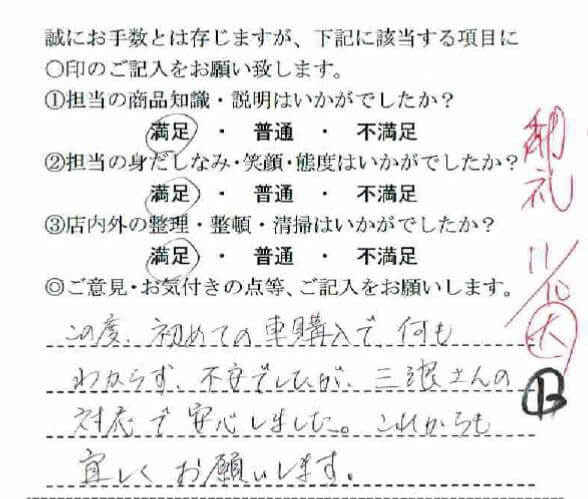 誠にお手数とは存じますが、下記に該当する項目に
〇印のご記入をお願い致します。
①担当の商品知識・説明はいかがでしたか？
満足 ・ 普通 ・ 不満足
②担当の身だしなみ・笑顔・態度はいかがでしたか？
満足 ・ 普通 ・ 不満足
③店内外の整理・整頓・清掃はいかがでしたか？
満足 ・ 普通 ・ 不満足
◎ご意見・お気付きの点等、ご記入をお願いします。
この度、初めての車購入で何も
わからず、不安でしたが、三浪さんの
対応で安心しました。これからも
宜しくお願いします。
礼
11/10
大
B